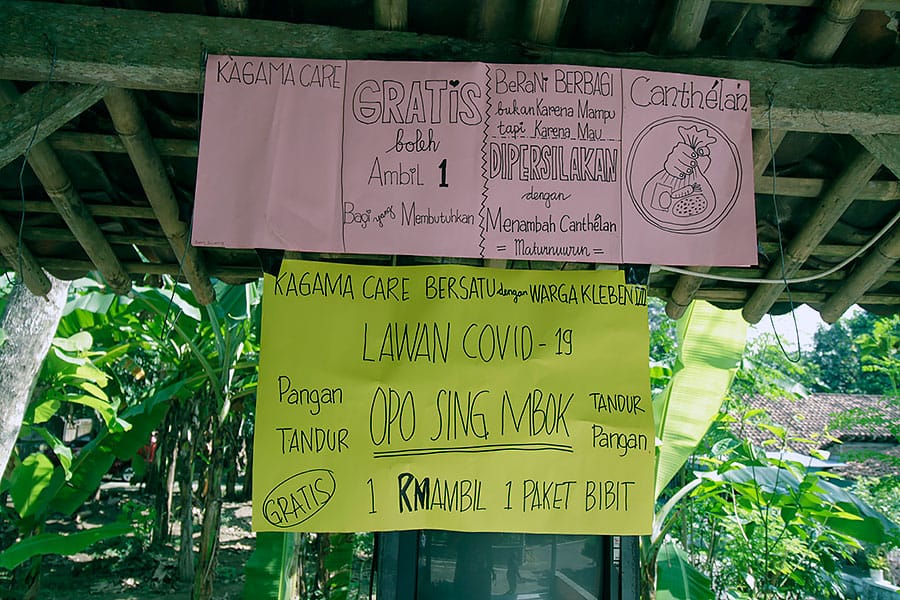 KAGAMA CARE
GRATiS
boleh
Ambil 1
Bagi yang Membutuhkan
BeRANi BERBAGI
bukan Karena Mampu
tapi Karena Mau
DIPERSILAKAN
dengan
Menambah Canthélan
= Maturnuwun =
Canthélan
KAGAMA CARE BERSATU dengan WARGA KLEBEN VII
LAWAN COVID-19
Pangan
TANDUR
OPO SING MBOK
TANDUR
Pangan
GRATIS
1 RM AMBIL 1 PAKET BIBIT